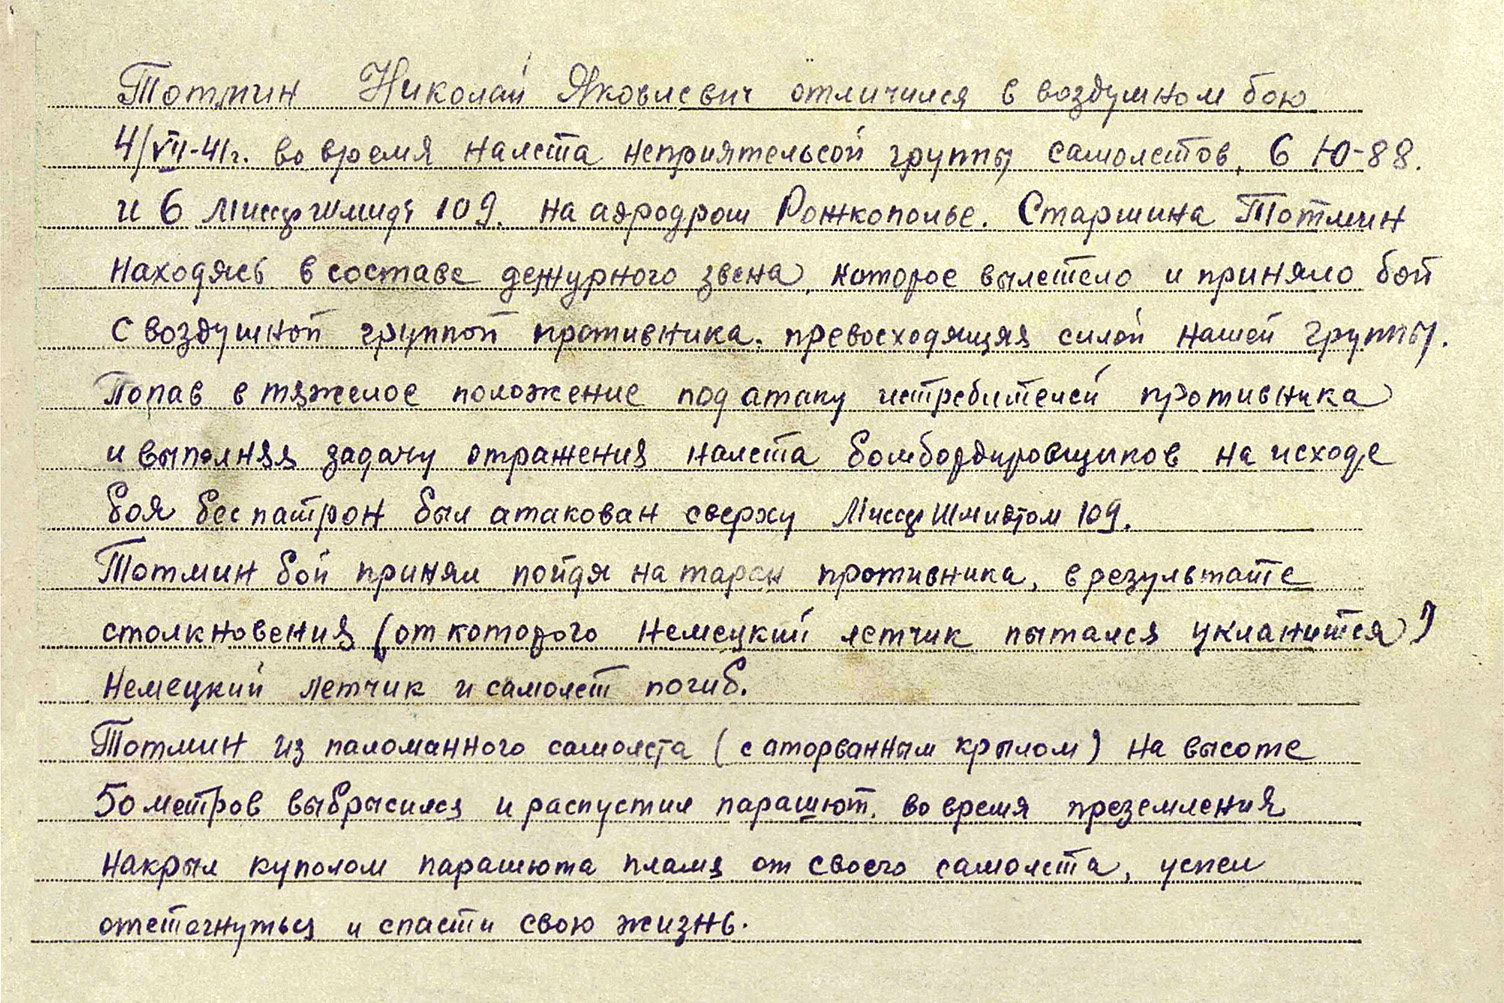 Тотмин Николай Яковлевич отличился в воздушном бою
4/VII-41г. во время налета неприятельсой группы самолетов, 6 Ю-88.
и 6 Миссершмидт 109. на аэродром Рожкополье. Старшина Тотмин
находясь в составе дежурного звена, которое вылетело и приняло бой
с воздушной группой противника. превосходящяя силой нашей группы.
Попав в тяжелое положение под атаку истребителей противника
и выполняя задачу отражения налета бомбордировщиков на исходе
боя бес патрон был атакован сверху Миссершмидтом 109.
Тотмин бой принял пойдя на таран противника, в результате
столкновения (от которого немецкий летчик пытался укланится)
немецкий летчик и самолет погиб.
Тотмин из паломанного самолета (с аторванным крылом) на высоте
50 метров выбрысился и распустил парашют, во время преземления
накрыл куполом парашюта пламя от своего самолета, успел
отстегнуться и спасти свою жизнь.